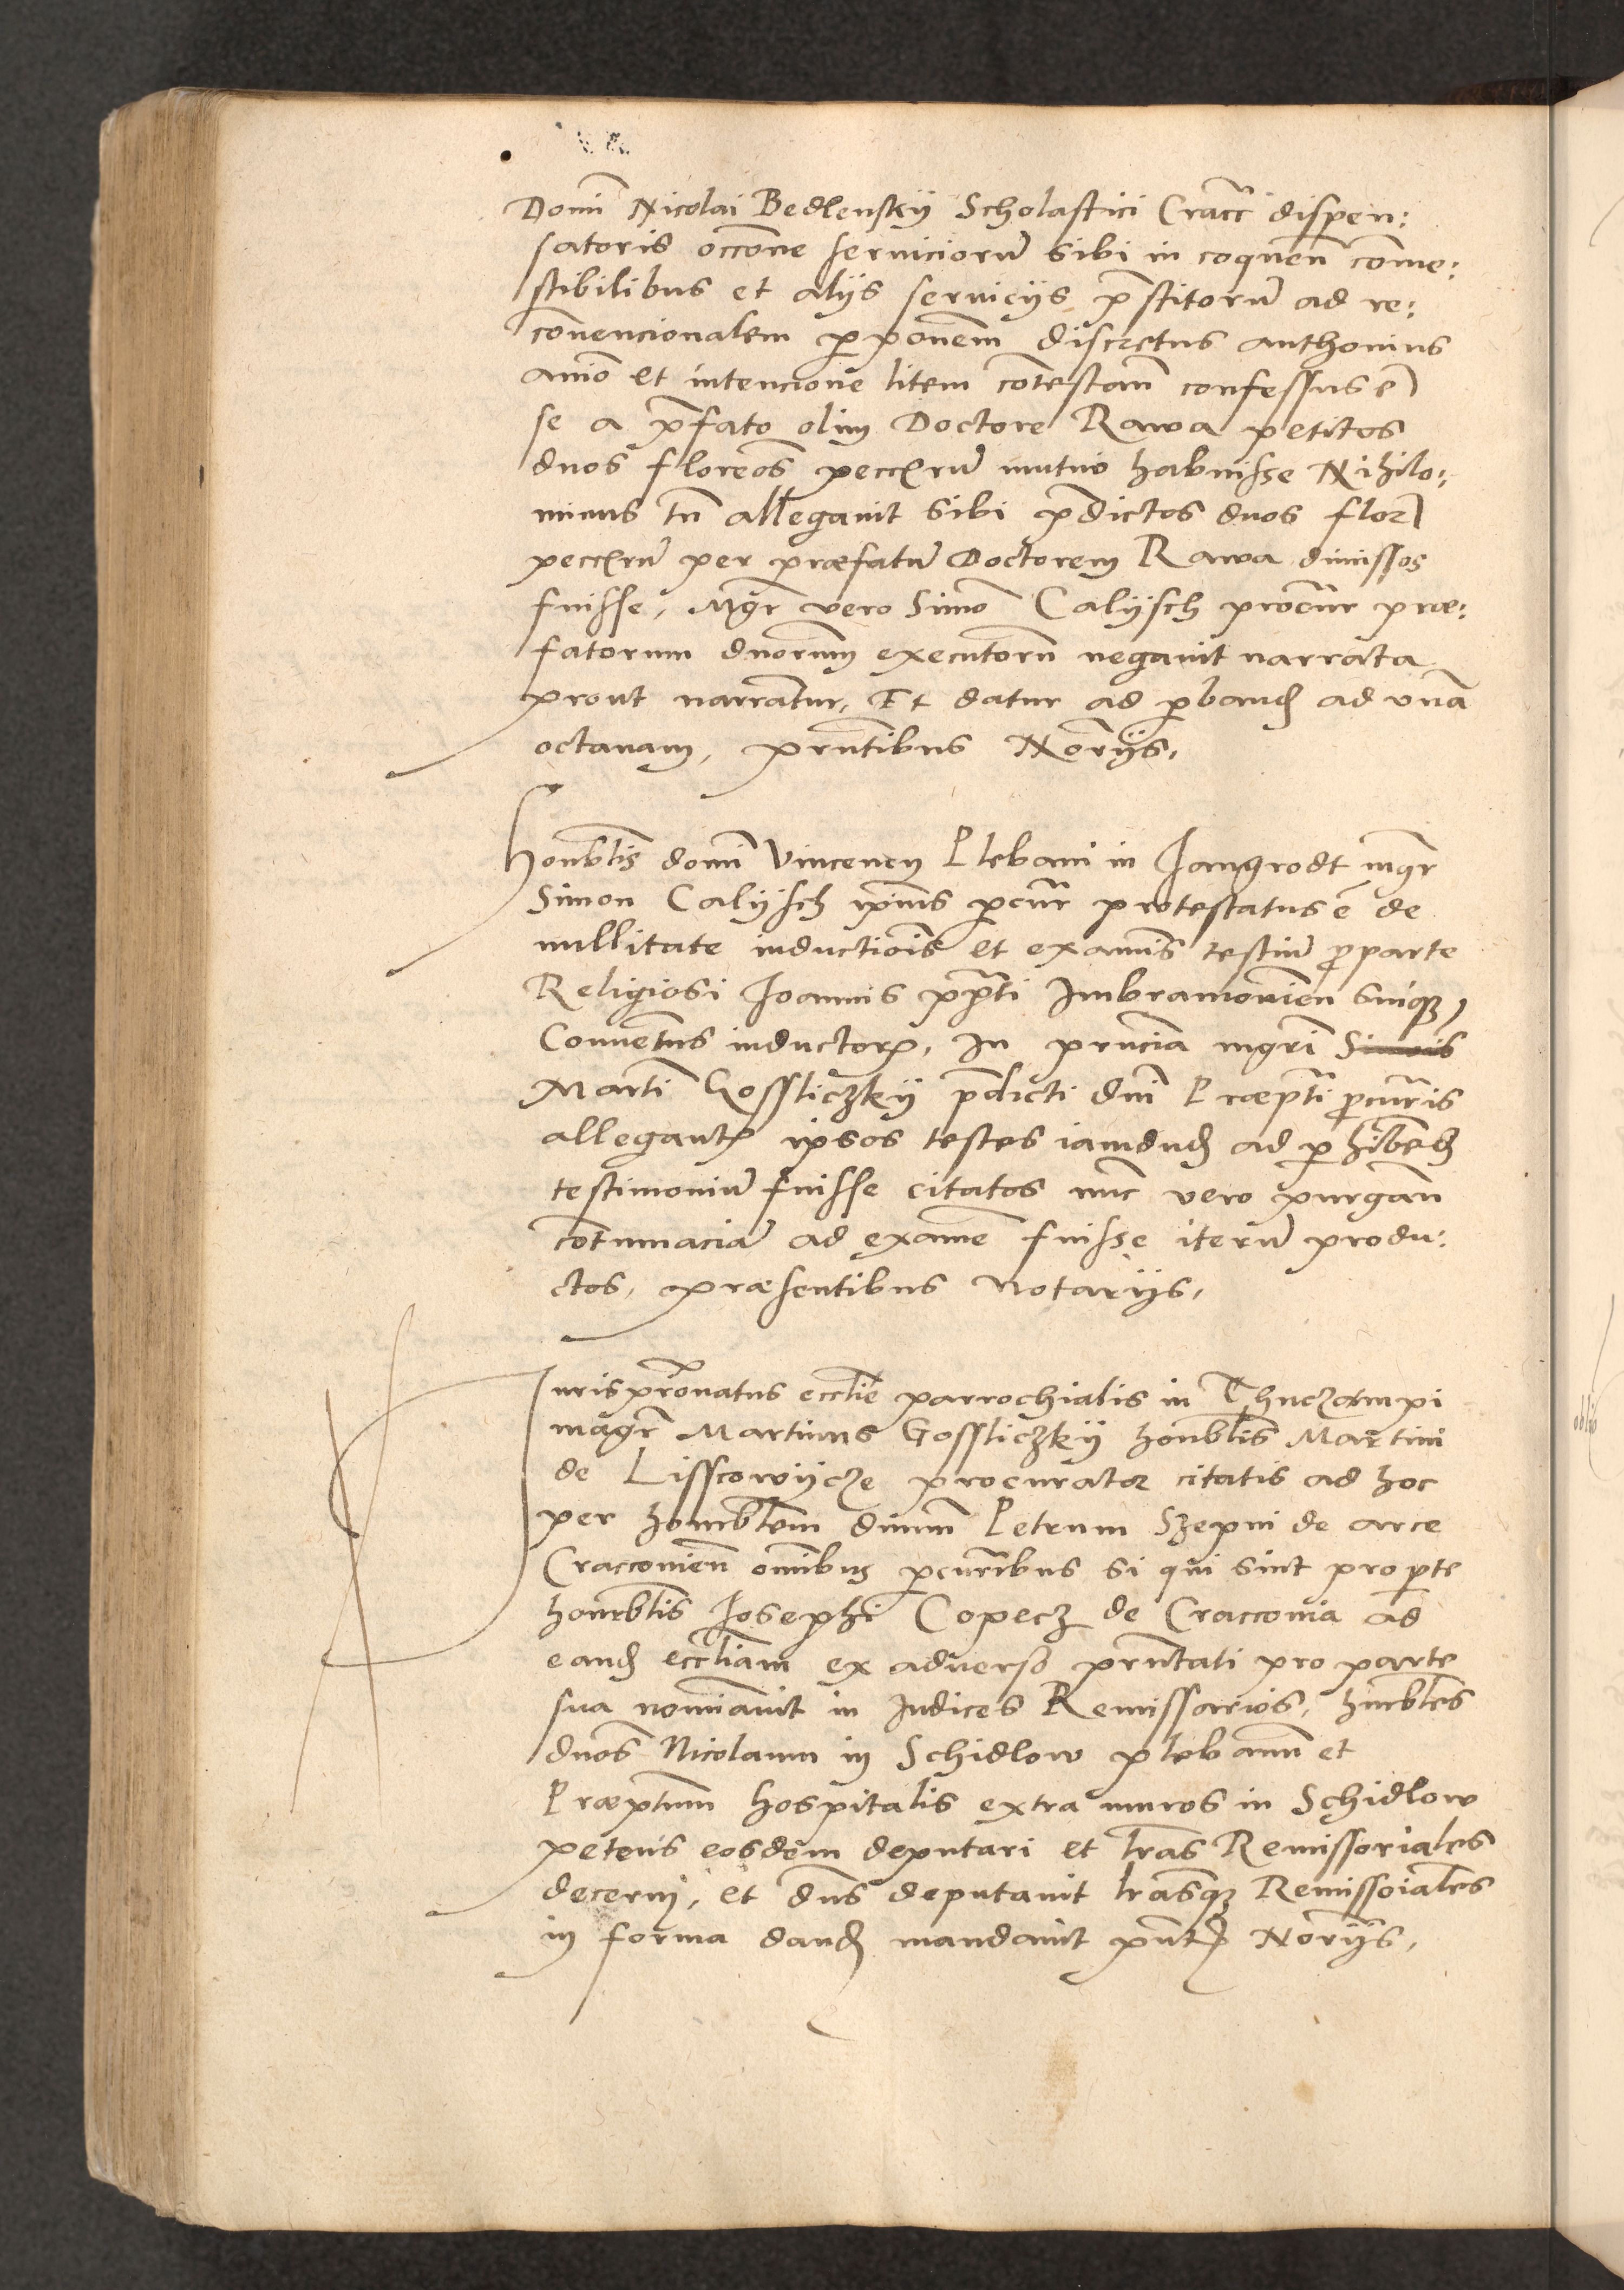 Domi Nicolai Bedlenskÿ Scholastici Cracc dispen:
satoris occone seruiciorũ sibi in coquen come:
stibilibus et alijs seruicijs pstitorũ ad re:
conuencionalem pponem discretus anthonius
aïo et intencione litem contestan confessus ẽ
se a pfato olim Doctore Rawa petitos
duos florenos peccŕrũ mutuo habuisse Nihilo:
minus tñ allegauit sibi pdictos duos flor
peccŕrũ per præfatũ Doctorem Rawa dimissos
fuisse, Mgr vero Simo Calÿsch procur præ:
fatorum dnorum executorũ negauit narrata
prout narrantur, Et datur ad pband ad vnã
octauam, pntibus Norijs,
Honblis domi Vincency Plebani in Jangrodt mgr
Simon Calÿsch ipius pcur protestatus ẽ de
nullitate inductiois et examis testiũ pro parte
Religiosi Joannis ppti Imbramouien suiqz
Conuentus inductorꝝ, In pncia mgri Simois
Marti Gossliczkÿ pdicti dni Præpti pcuris
allegantꝭ ipsos testes iamdud ad phibed
testimoniũ fuisse citatos nuc vero purgan
contumaciã ad exame fuisse iterũ produ:
ctos, præsentibus Notarijs,
Jurispronatus ecclie parrochialis in Thuczampi
magr Martinus Gossliczkÿ honblis Martini
de Lisscowÿcze procurator citatis ad hoc
per honorblem dnum Petrum Szepni de arce
Cracouien omibus pcuribus si qui sint pro pte
honorblis Josephi Copecz de Cracouia ad
eand eccliam ex aduerso pntati pro parte
sua nomiauit in Judices Remissarios, hnrbles
dnos Nicolaum in Schidlow plebanum et
Præptum hospitalis extra muros in Schidlow
petens eosdem deputari et lras Remissoriales
decerni, et dns deputauit lrasqz Remissoiales
in forma dand mandauit pntꝭ Norijs,